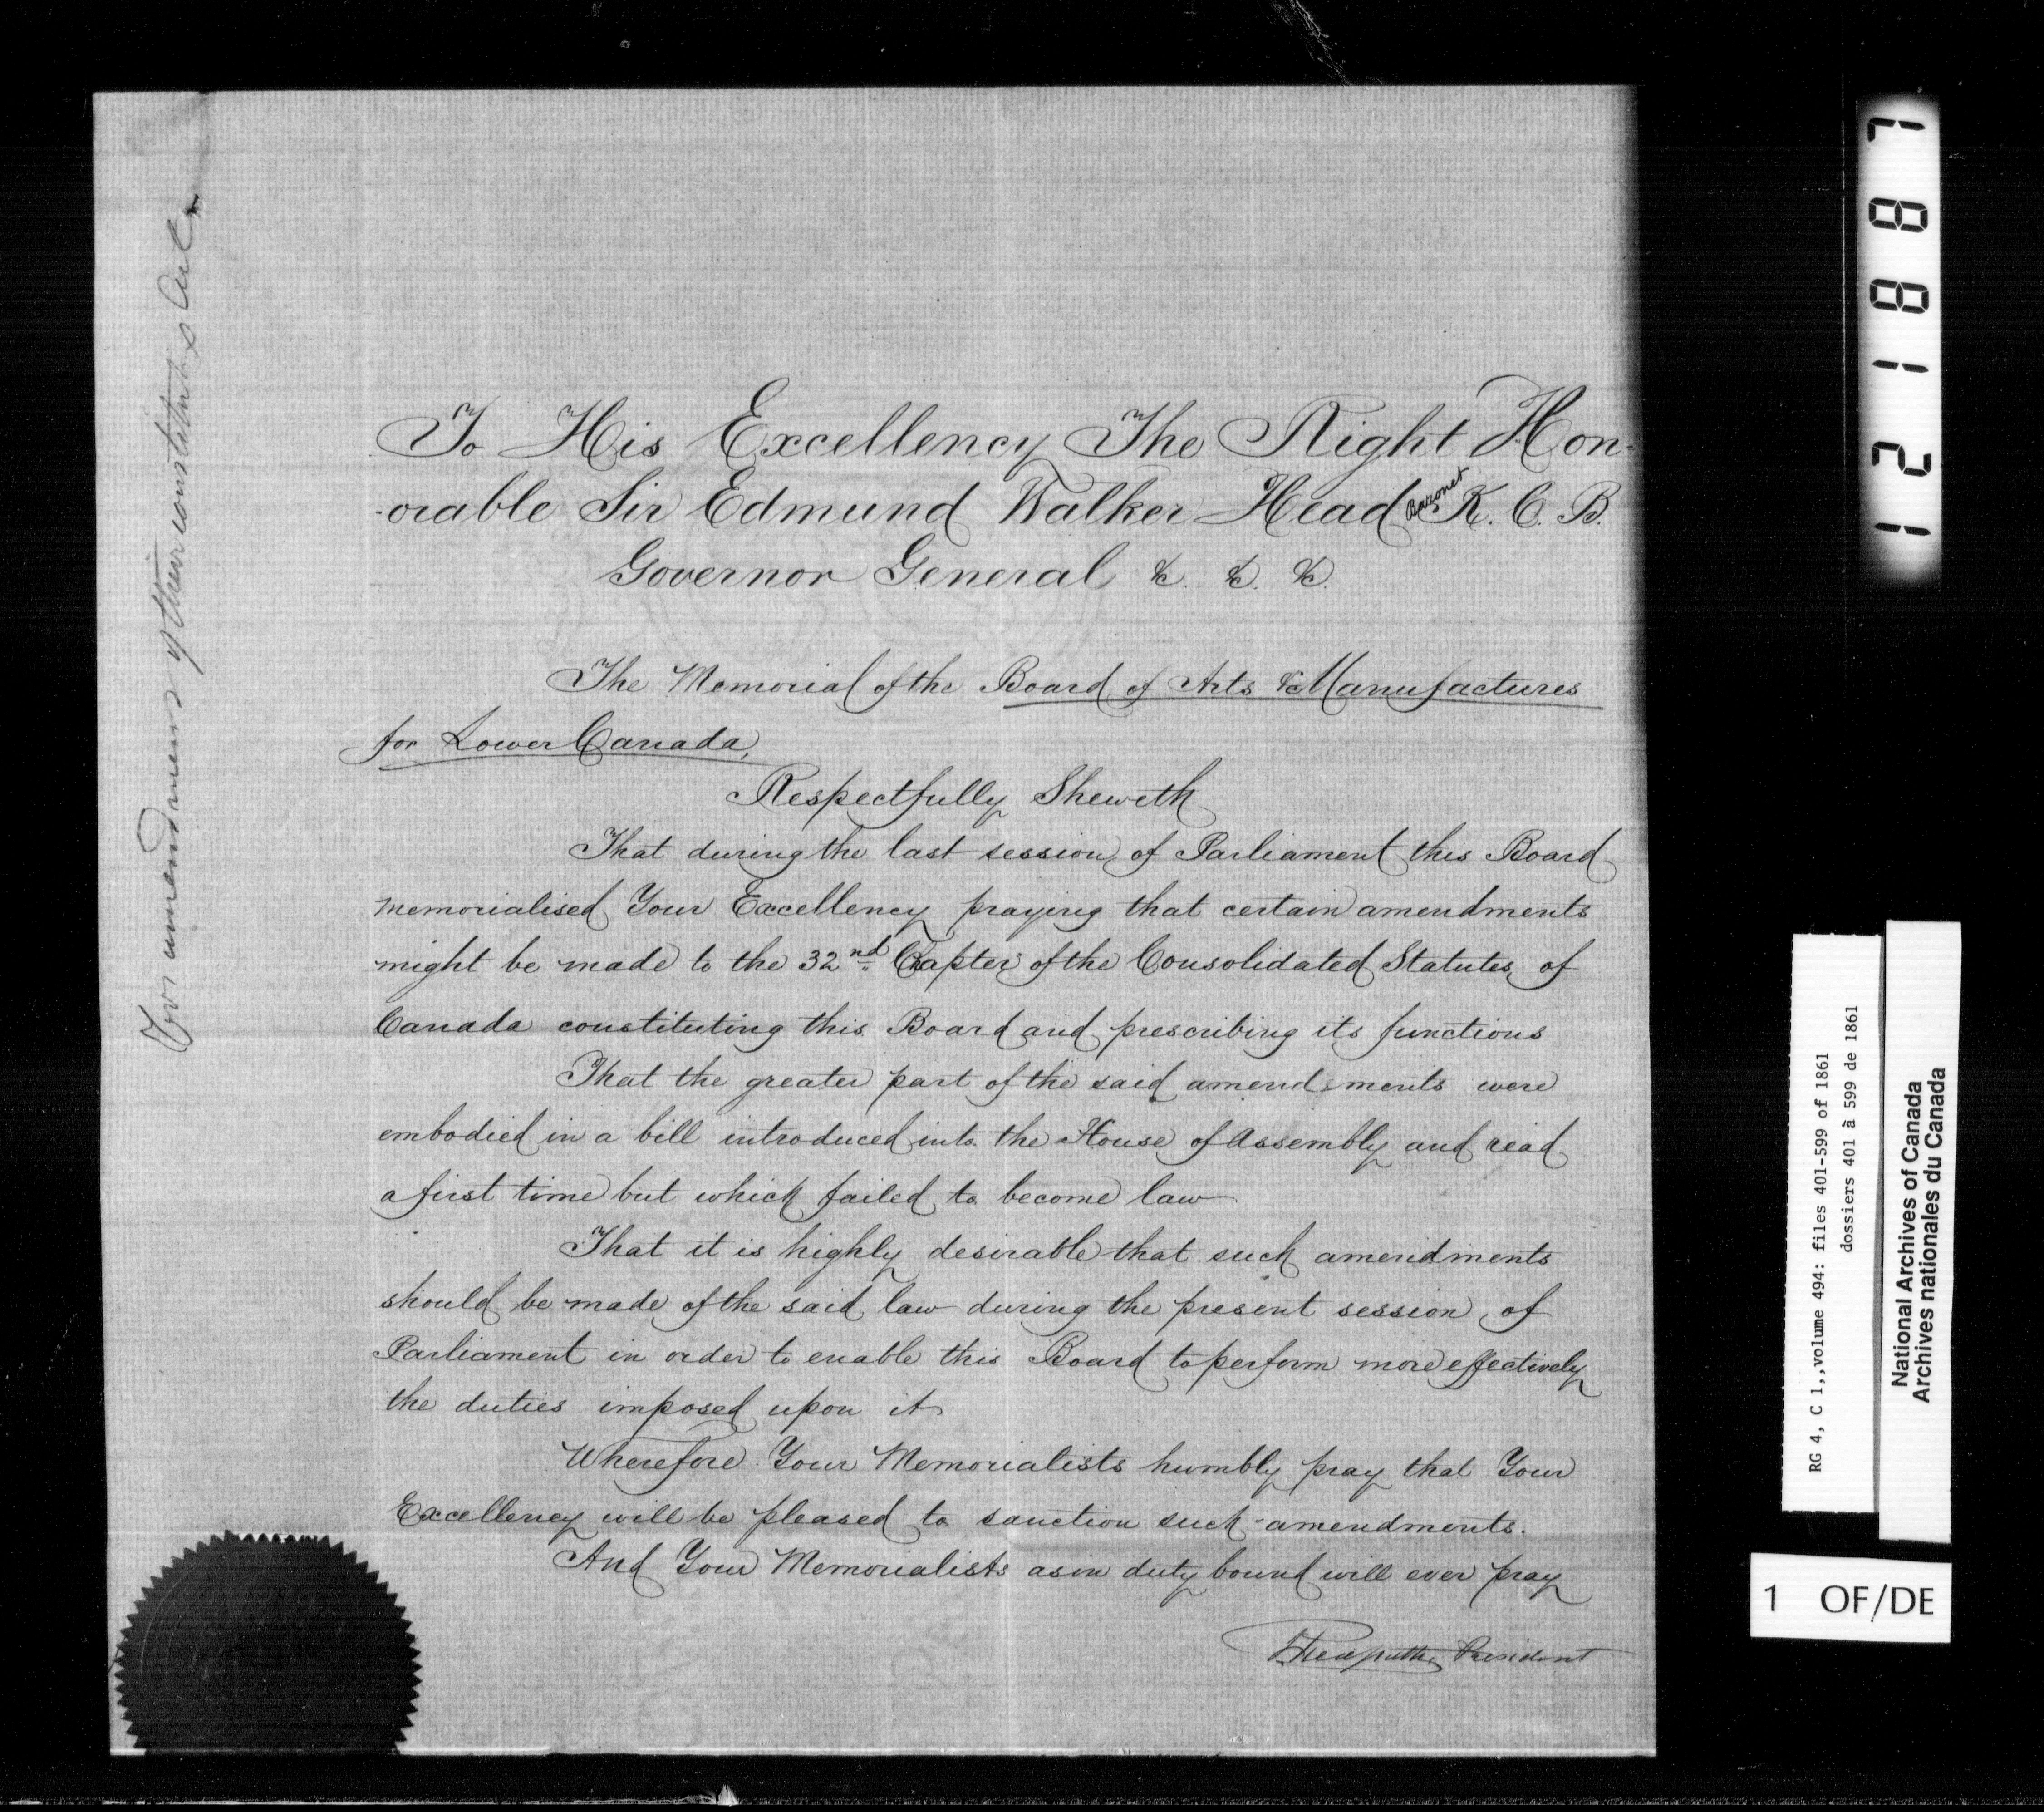 For amendment of their constituting Act
To His Excellency The Right Hon-
-orable Sir Edmund Walker Head Baronet K. C. B.
Governor General &c. &c. &c.
The Memorial of the Board of Arts & Manufactures
for Lower Canada,
Respectfully Sheweth
That during the last session of Parliament this Board
memorialised Your Excellency praying that certain amendments
might be made to the 32nd Chapter of the Consolidated Statutes of
Canada constituting this Board and prescribing its functions
That the greater part of the said amend-ments were
embodied in a bill introduced into the House of Assembly and read
a first time but which failed to become law
That it is highly desirable that such amendments
should be made of the said law during the present session of
Parliament in order to enable this Board to perform more effectively
the duties imposed upon it
Wherefore Your Memorialists humbly pray that Your
Excellency will be pleased to sanction such amendments.
And Your Memorialists as in duty bound will ever pray
Redpath President
121887
RG 4, C 1,,volume 494: files 401-599 of 1861
dossiers 401 à 599 de 1861
National Archives of Canada
Archives nationales du Canada
1 OF/DE